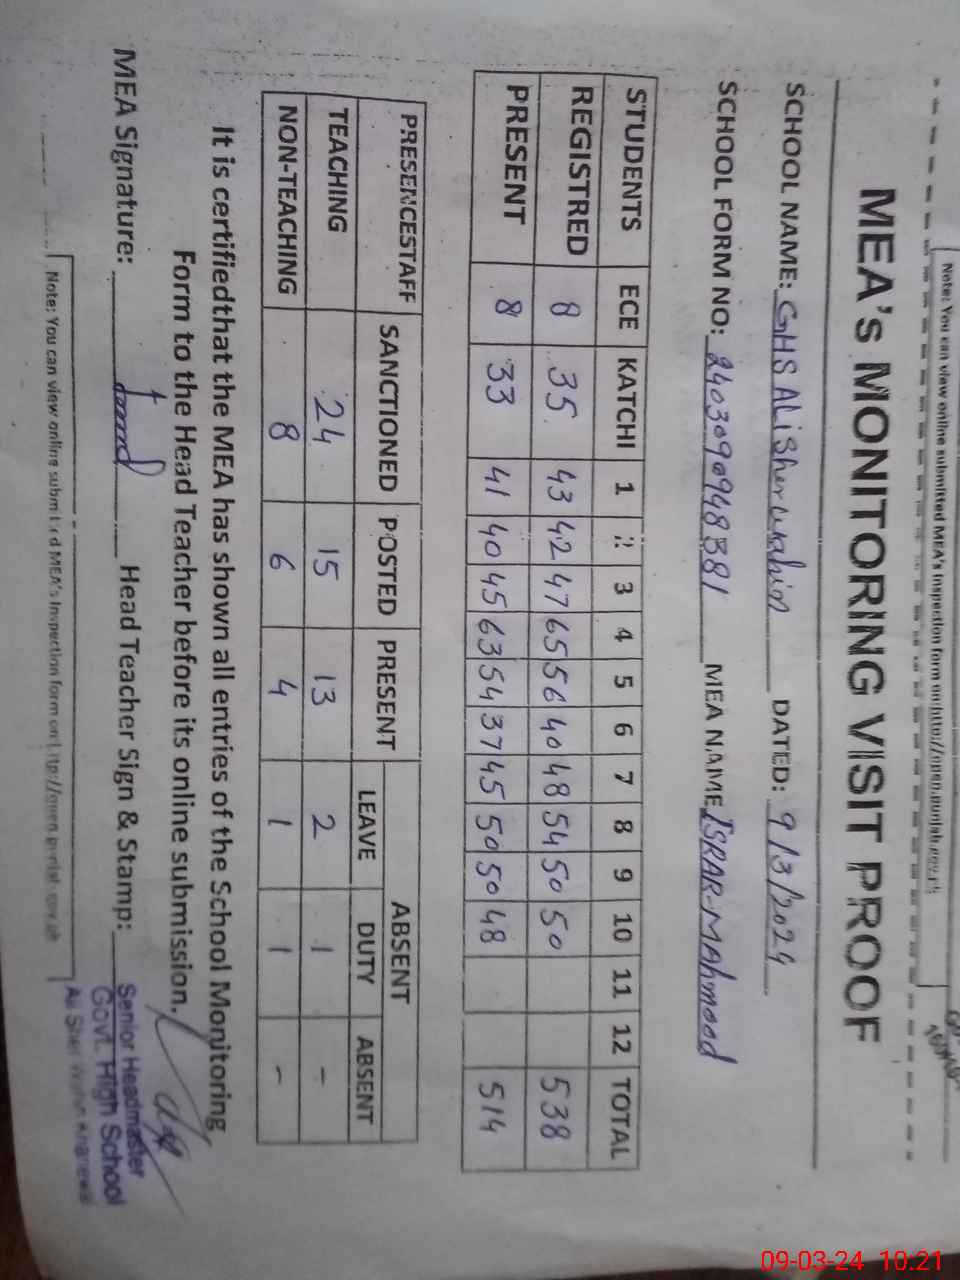 Note: You can view online submitted MEA's Inspection form on http://open.punjab.gov.pk
MEA's MONITORING VISIT PROOF
SCHOOL NAME: GHS ALi Sher wahin DATED: 9/3/2024
SCHOOL FORM NO: MEA NAME ISRAR-MAhmood
STUDENTS ECE KATCHI 1 2 3 4 5 6 7 8 9 10 11 12 TOTAL
REGISTRED 8 35 43 42 47 65 56 40 48 54 50 50 538
PRESENT 8 33 41 40 45 63 54 37 45 50 50 48 514
PRESENCESTAFF SANCTIONED POSTED PRESENT ABSENT
LEAVE DUTY ABSENT
TEACHING 24 15 13 2 1 -
NON-TEACHING 8 6 4 1 1 -
It is certifiedthat the MEA has shown all entries of the School Monitoring
Form to the Head Teacher before its online submission.
MEA Signature: Head Teacher Sign & Stamp:
Senior Headmaster
Govt. High School
Ali Sher Wahin Khanewal
Note: You can view online submitted MEA's Inspection form on
09-03-24 10:21